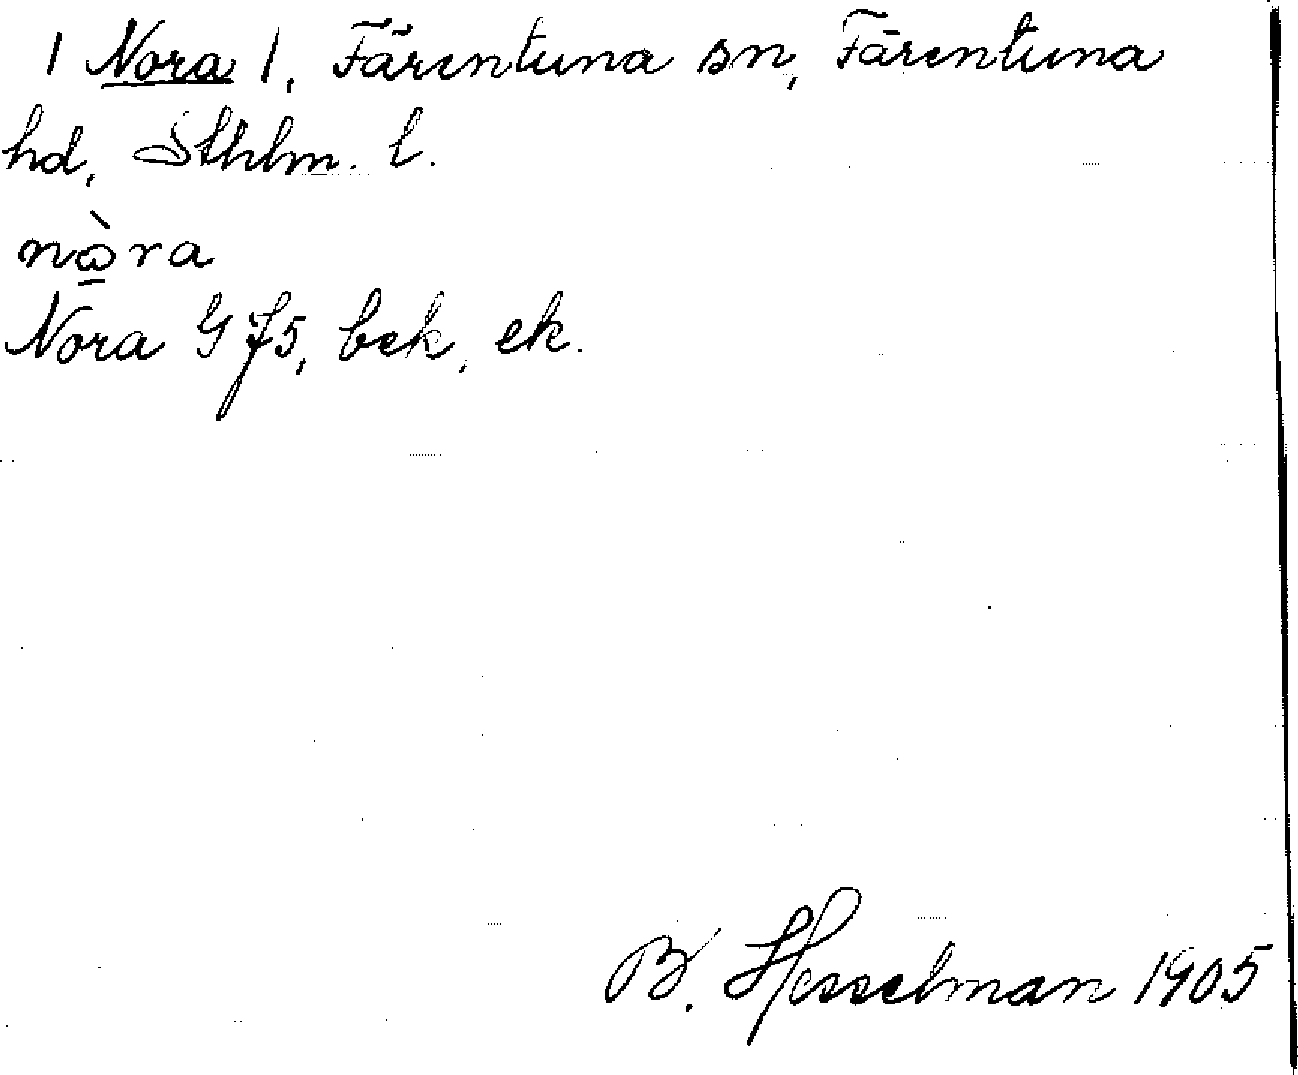 | Nora |, Färentuna sn, Färentuna
hd, Sthlm. l.
nὼra
Nora G f5, bek, ek.
B. Hesselman 1905